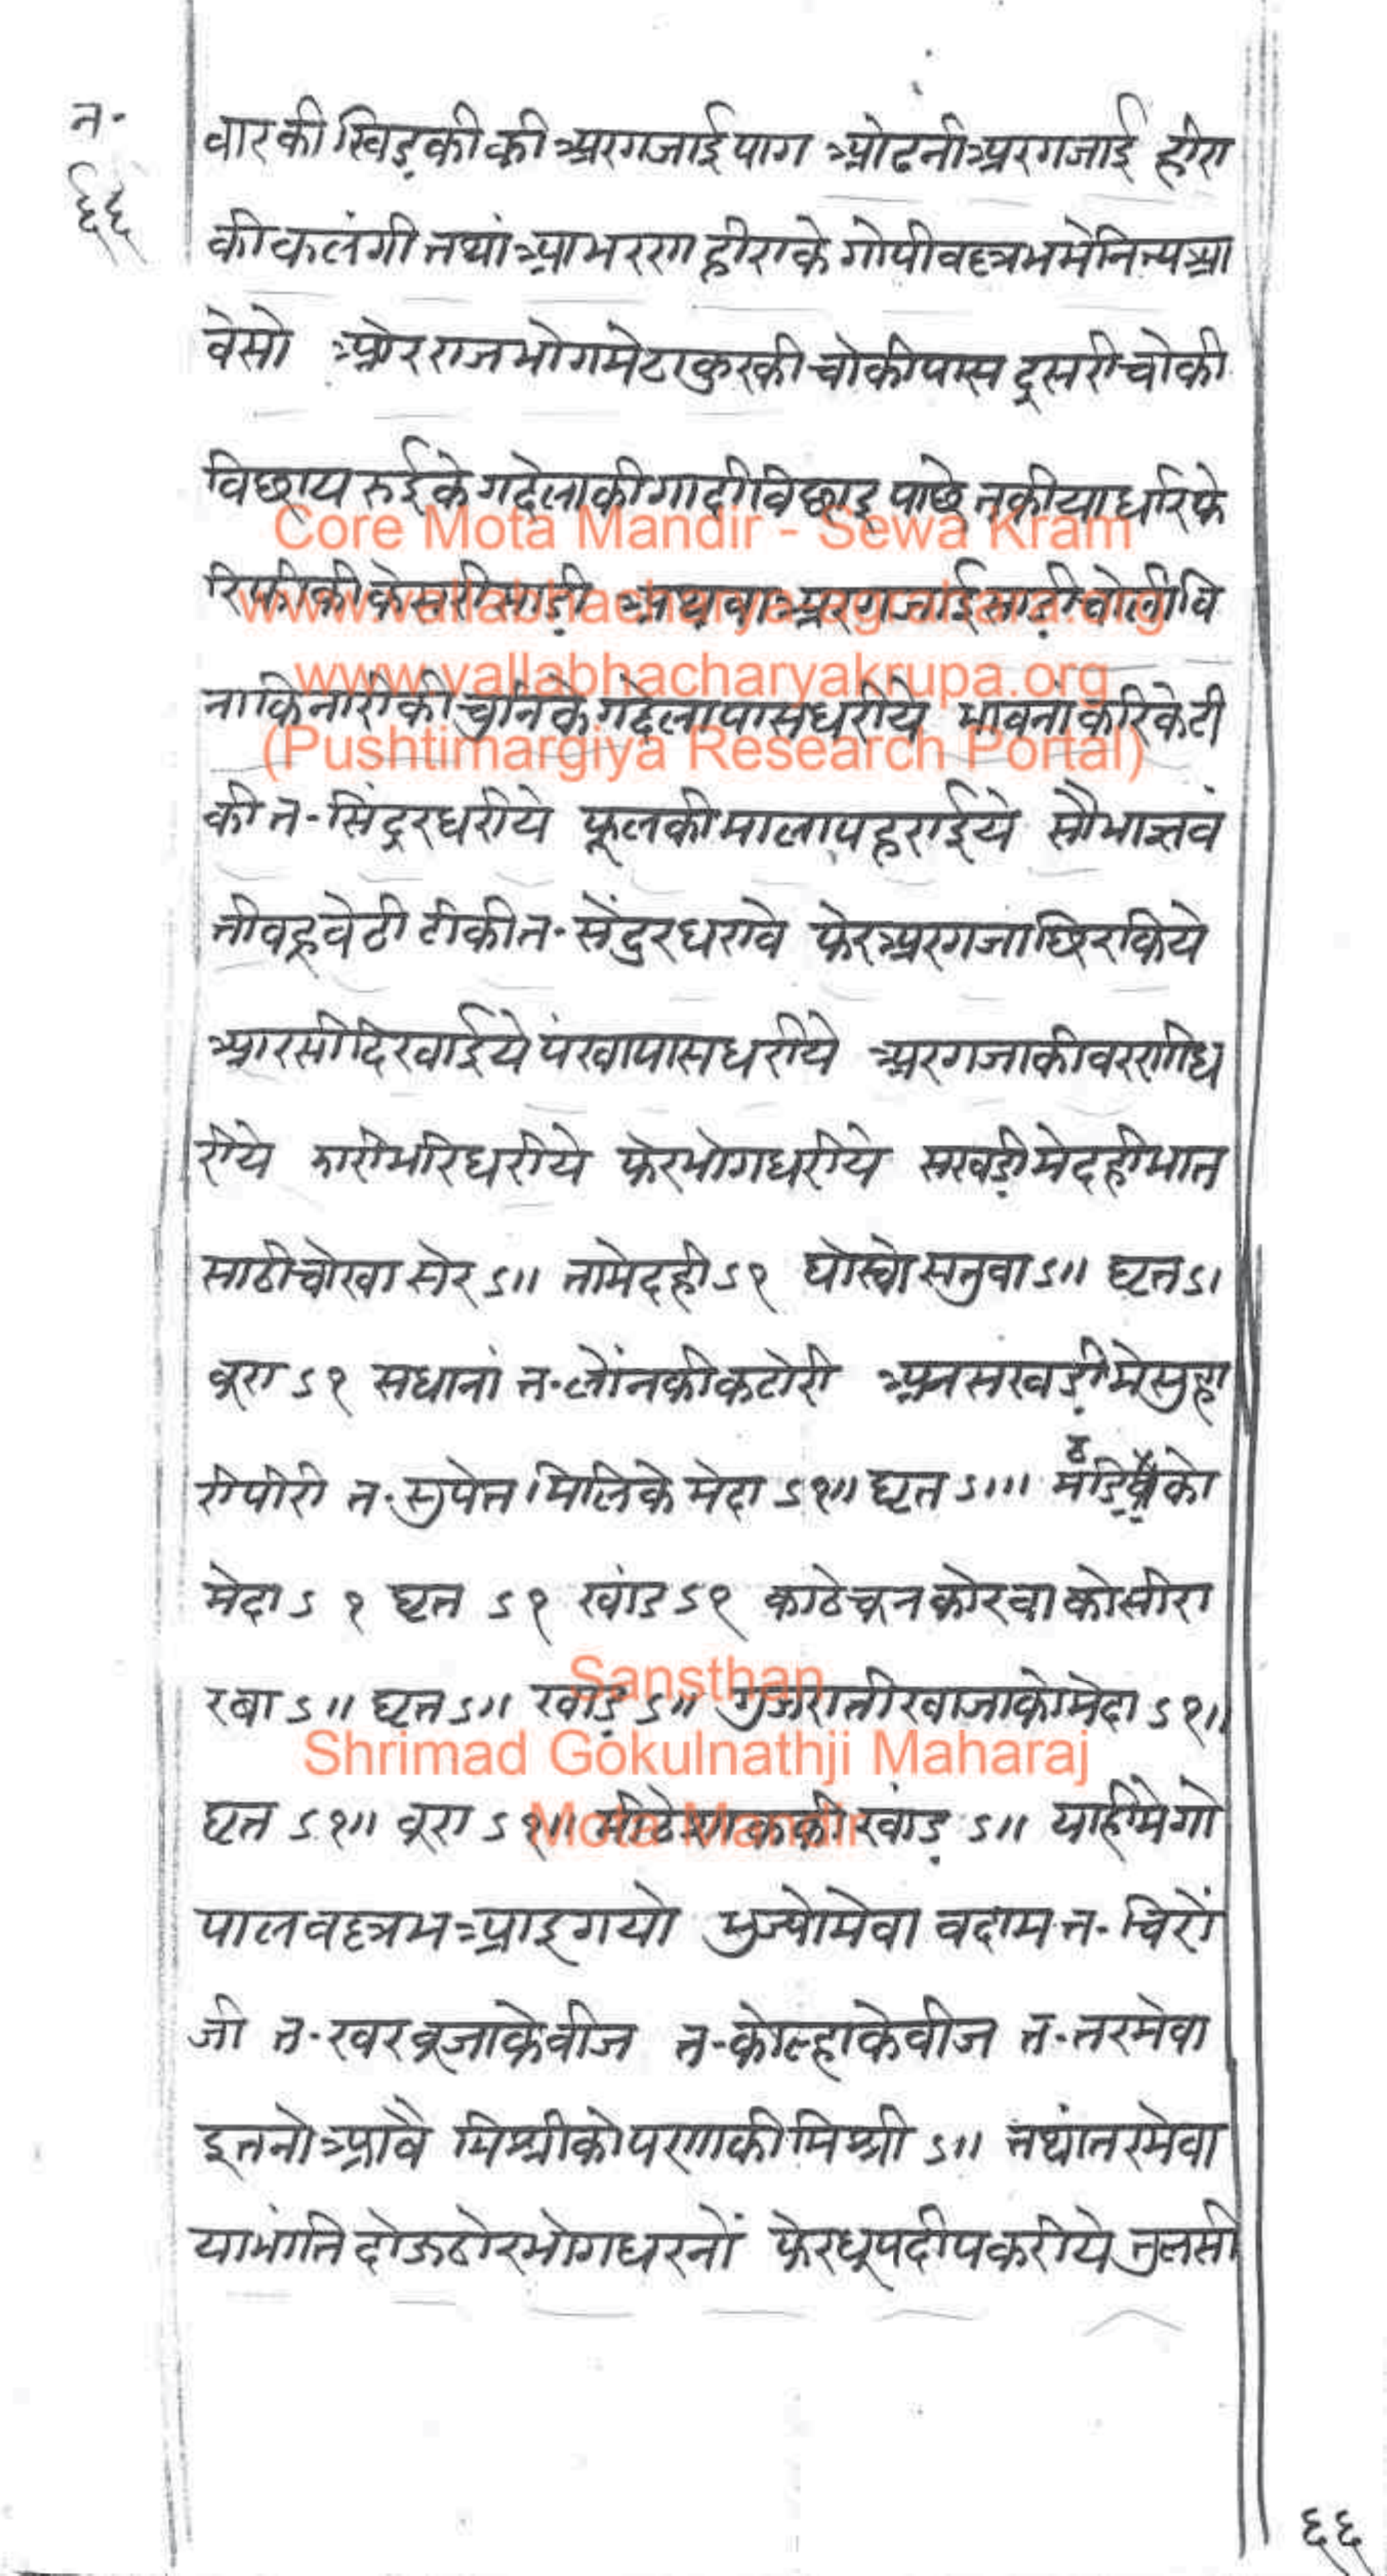 त॰
६६
वारकी खिड़कीकी अरगजाई पाग ओढनी अरगजाई हीरा
की कलंगी तथां आभरण हीराके गोपीवल्लभमे नित्य आ
वेसो ओर राजभोगमे ठाकुरकी चोकी पास दूसरी चोकी
विछाय रुईके गदेलाकी गादी विछाइ पाछे तकीया धरि फे
रि फीकी केसरी साड़ी अथवा अरगजाई साड़ी चोली वि
ना किनारीकी चुनिके गदेला पास धरीये भावनां करिके टी
की त॰ सिंदूर धरीये फूलकी माला पहराईये सौभाग्यवं
ती वहू वेटी टीकी त॰ सेंदुर धरावे फेर अरगजा छिरकिये
आरसी दिखाईये पंखा पास धरीये अरगजाकी वरणी ध
रीये झारी भरि धरीये फेर भोग धरीये सखड़ी मे दही भात
साठी चोखा सेर ऽ॥ तामे दही ऽ१ घोरवो सतुवा ऽ॥ घृत ऽ।
वूरा ऽ१ सधानां त॰ लोंनकी कटोरी अनसखड़ी मे सुहा
री पीरी त॰ सुपेत मिलिके मेदा ऽ१॥ घृत ऽ॥। को
मेदा ऽ१ घृत ऽ१ खांड ऽ१ काठे रवा को सीरा
रवा ऽ॥ घृत ऽ॥ खांड़ ऽ॥ गुजराती खाजा को मेदा ऽ१॥
घृत ऽ१॥ वूरा ऽ१॥ मीठे शाककी खांड़ ऽ॥ याहीमे गो
पालवल्लभ आइ गयो भुज्यो मेवा वदाम त॰ चिरों
जी त॰ खरवूजाके वीज त॰ कोल्हाके वीज त॰ तरमेवा
इतनो आवै मिश्रीको पणाकी मिश्री ऽ॥ तथां तरमेवा
या भांति दोऊ ठोर भोग धरनों फेर धूप दीप करीये तुलसी
६६
Core Mota Mandir - Sewa Kram
www.vallabhacharya-agrahara.org
www.vallabhacharyakrupa.org
(Pushtimargiya Research Portal)
Sansthan
Shrimad Gokulnathji Maharaj
Mota Mandir